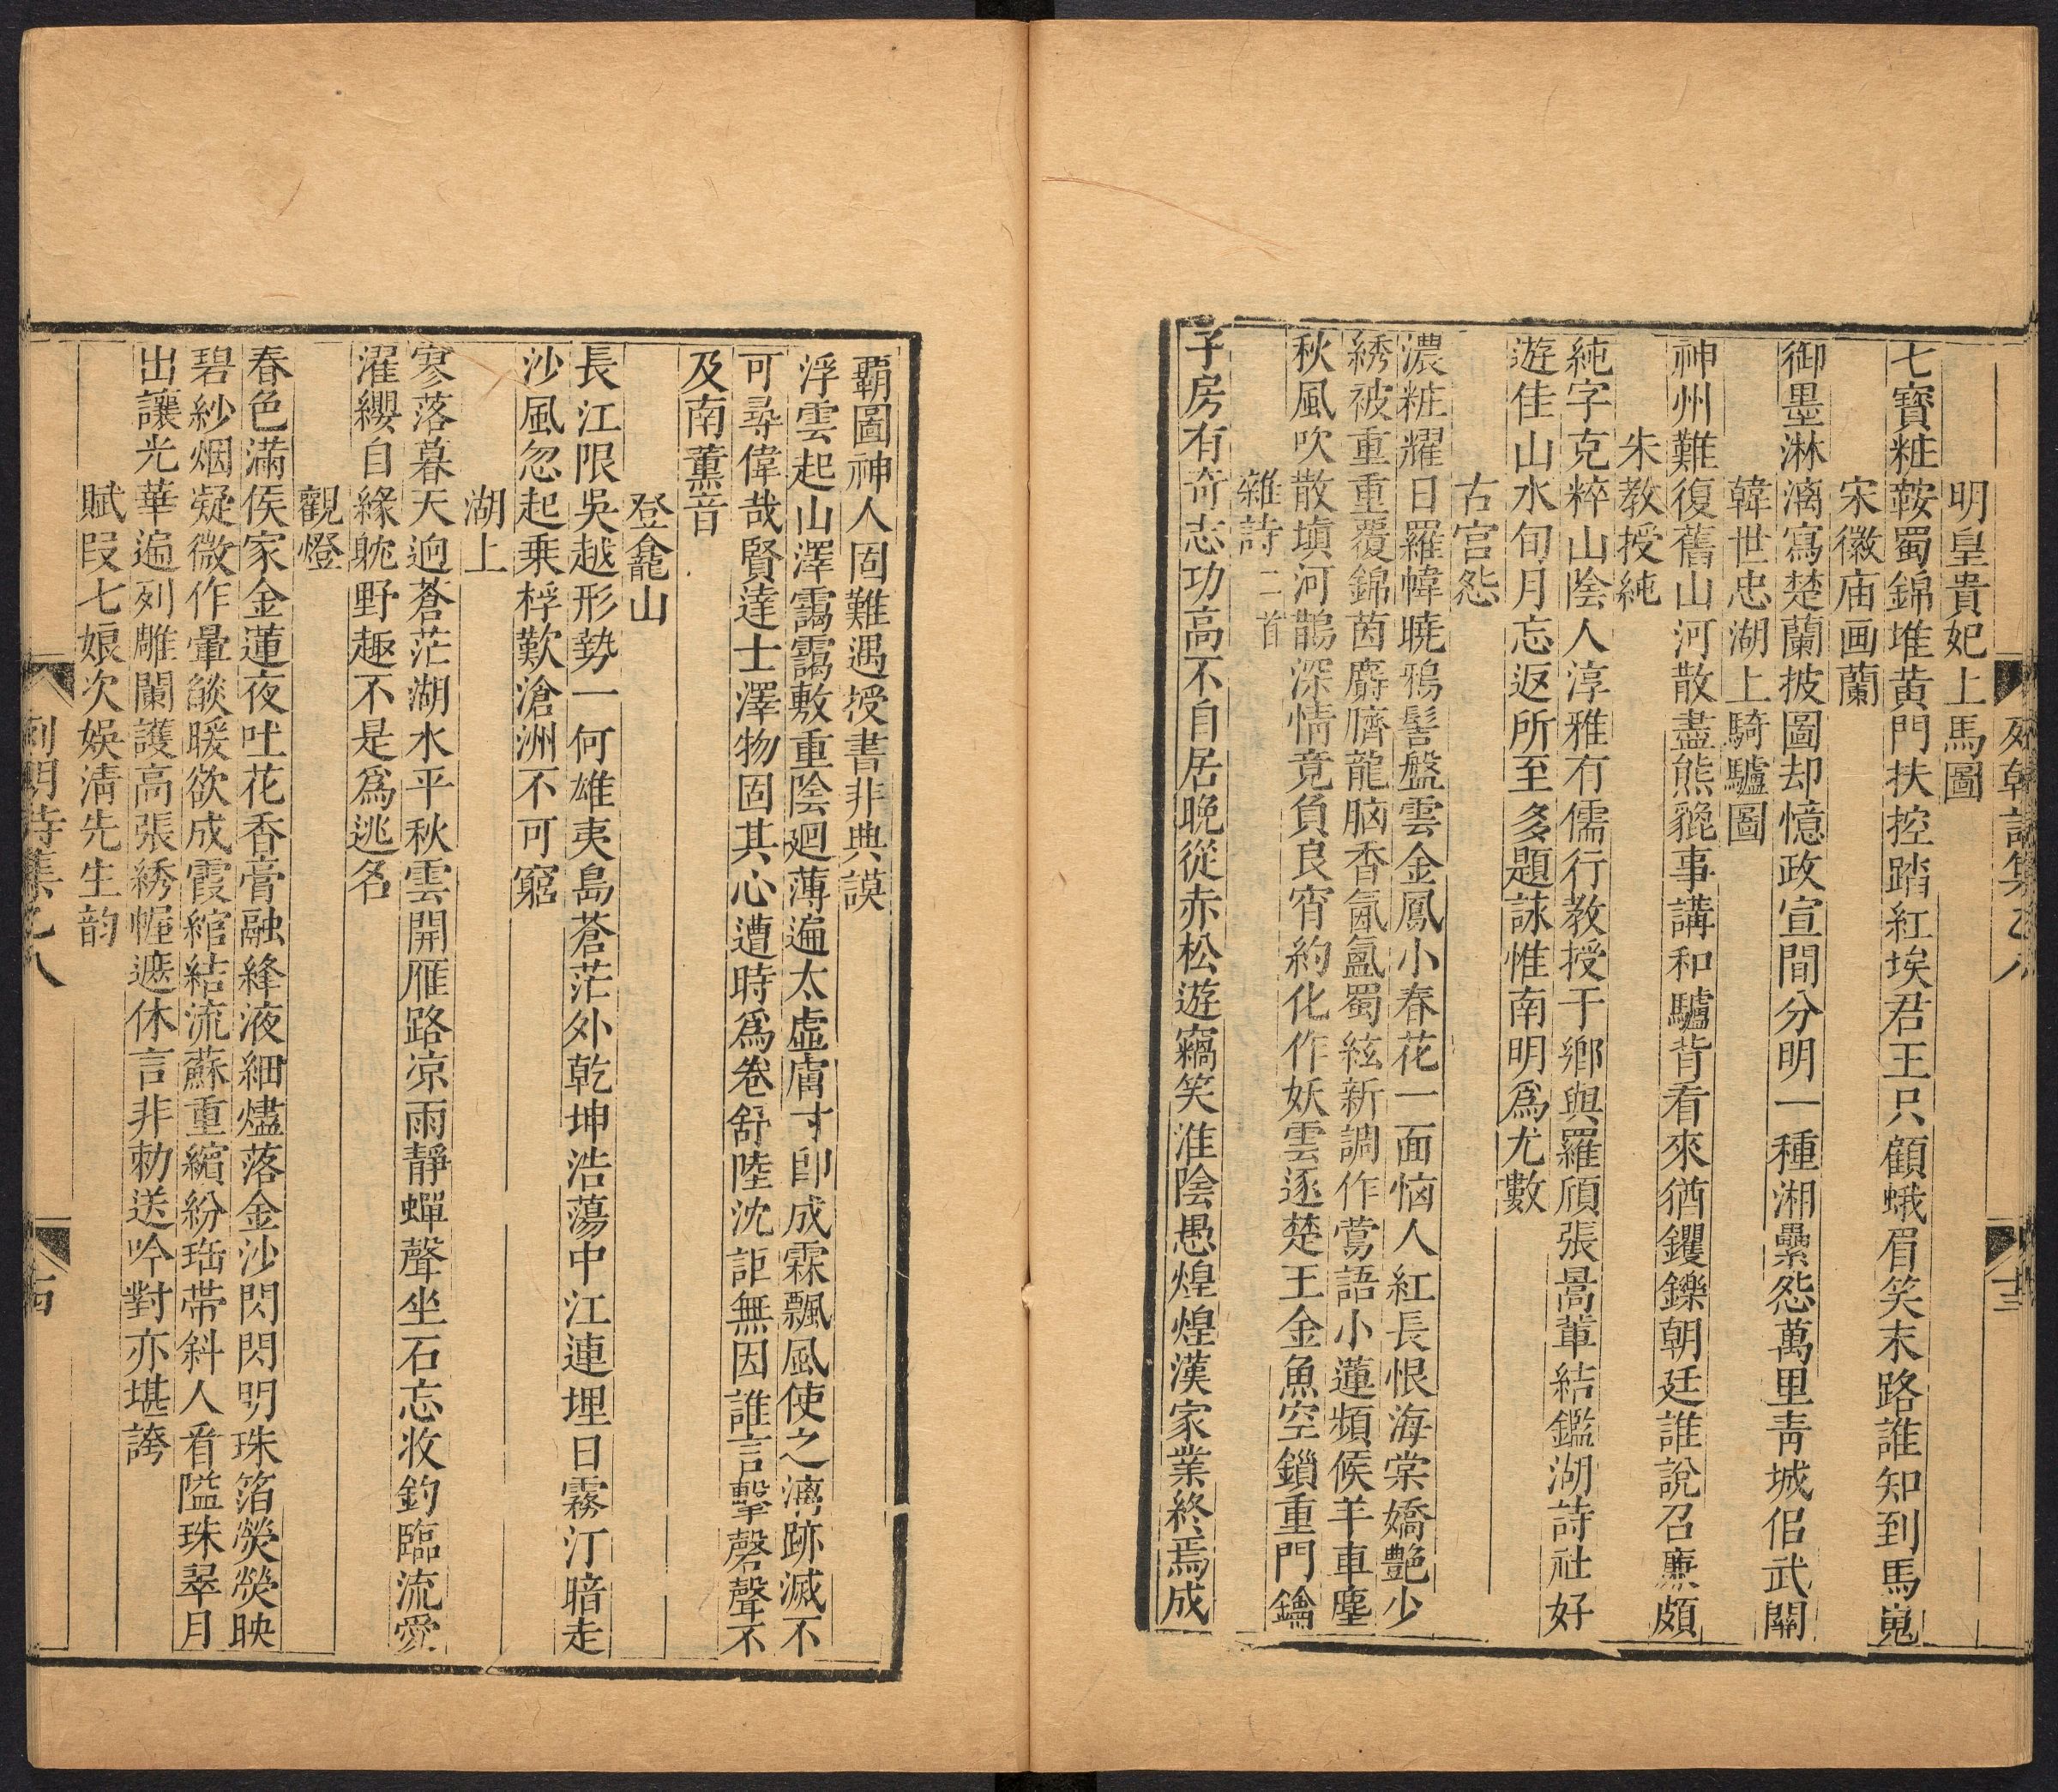 明皇貴妃上馬圖
七寶粧鞍蜀錦堆黃門扶控踏紅埃君王只顧蛾眉笑末路誰知到馬嵬
宋徽庙画蘭
御墨淋漓寫楚蘭披圖却憶政宣間分明一種湘纍怨萬里青城佀武關
韓世忠湖上騎驢圖
神州難復舊山河散盡熊貔事講和驢背看來猶钁鑠朝廷誰說召廉頗
朱教授純
純字克粹山陰人淳雅有儒行教授于鄉與羅頎張暠輩結鑑湖詩社好
遊佳山水旬月忘返所至多題詠惟南明爲尤數
古宫怨
濃粧耀日羅幃曉鴉髻盤雲金鳳小春花一面惱人紅長恨海棠嬌艶少
綉被重重覆錦茵麝臍龍脑香氤氳蜀絃新調作鶯語小蓮頻候羊車塵
秋風吹散塡河鵲深情竟負良宵約化作妖雲逐楚王金魚空鎖重門鑰
雜詩二首
子房有奇志功高不自居晚從赤松遊竊笑淮陰愚煌煌漢家業終焉成
列朝詩集乙八
十三
霸圖神人固難遇授書非典謨
浮雲起山澤靄靄敷重陰廻薄遍太虛膚寸卽成霖飄風使之漓跡滅不
可尋偉哉賢達士澤物固其心遭時爲卷舒陸沈詎無因誰言擊磬聲不
及南薰音
登龕山
長江限吳越形勢一何雄夷島蒼茫外乾坤浩蕩中江連埋日霧汀暗走
沙風忽起乗桴歎滄洲不可窮
湖上
寥落暮天逈蒼茫湖水平秋雲開雁路凉雨靜蟬聲坐石忘收釣臨流愛
濯纓自緣躭野趣不是爲逃名
觀燈
春色滿侯家金蓮夜吐花香膏融絳液細燼落金沙閃閃明珠箔熒熒映
碧紗烟凝微作暈燄暖欲成霞綰結流蘇重繽紛珤帶斜人看隘珠翠月
出讓光華遍列雕闌護高張綉幄遮休言非勅送吟對亦堪誇
賦叚七娘次娛清先生韵
列朝詩集乙八
十四